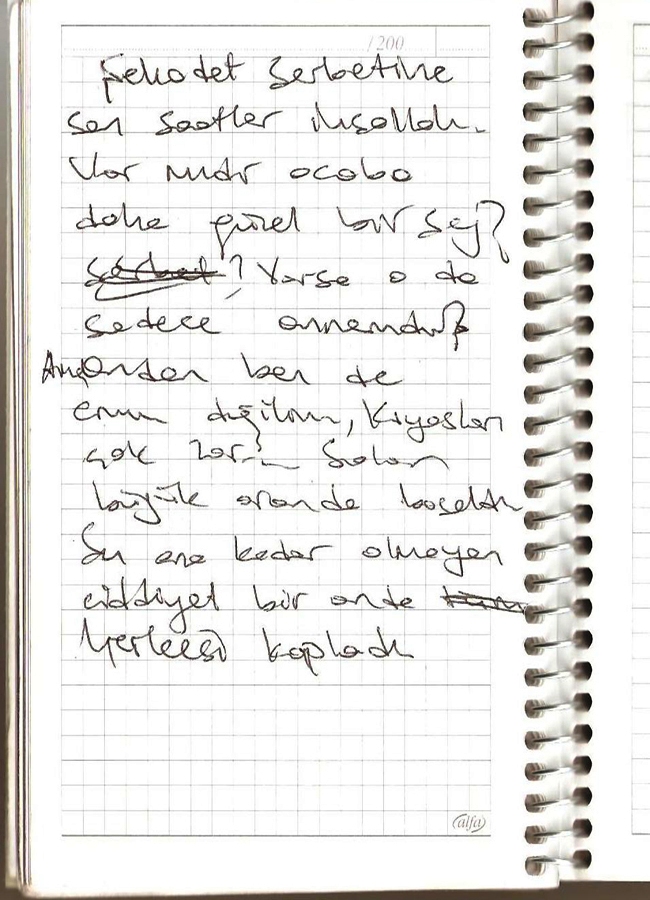 /200
Şehadet şerbetine
son saatler inşallah.
Var mıdır acaba
daha güzel bir şey?
Varsa o da
sadece annemdir?
Ama ondan ben de
emin değilim, Kıyaslan
çok zor?... Salon
büyük oranda boşaldı
Şu ana kadar olmayan
ciddiyet bir anda
herkesi kapladı
alfa